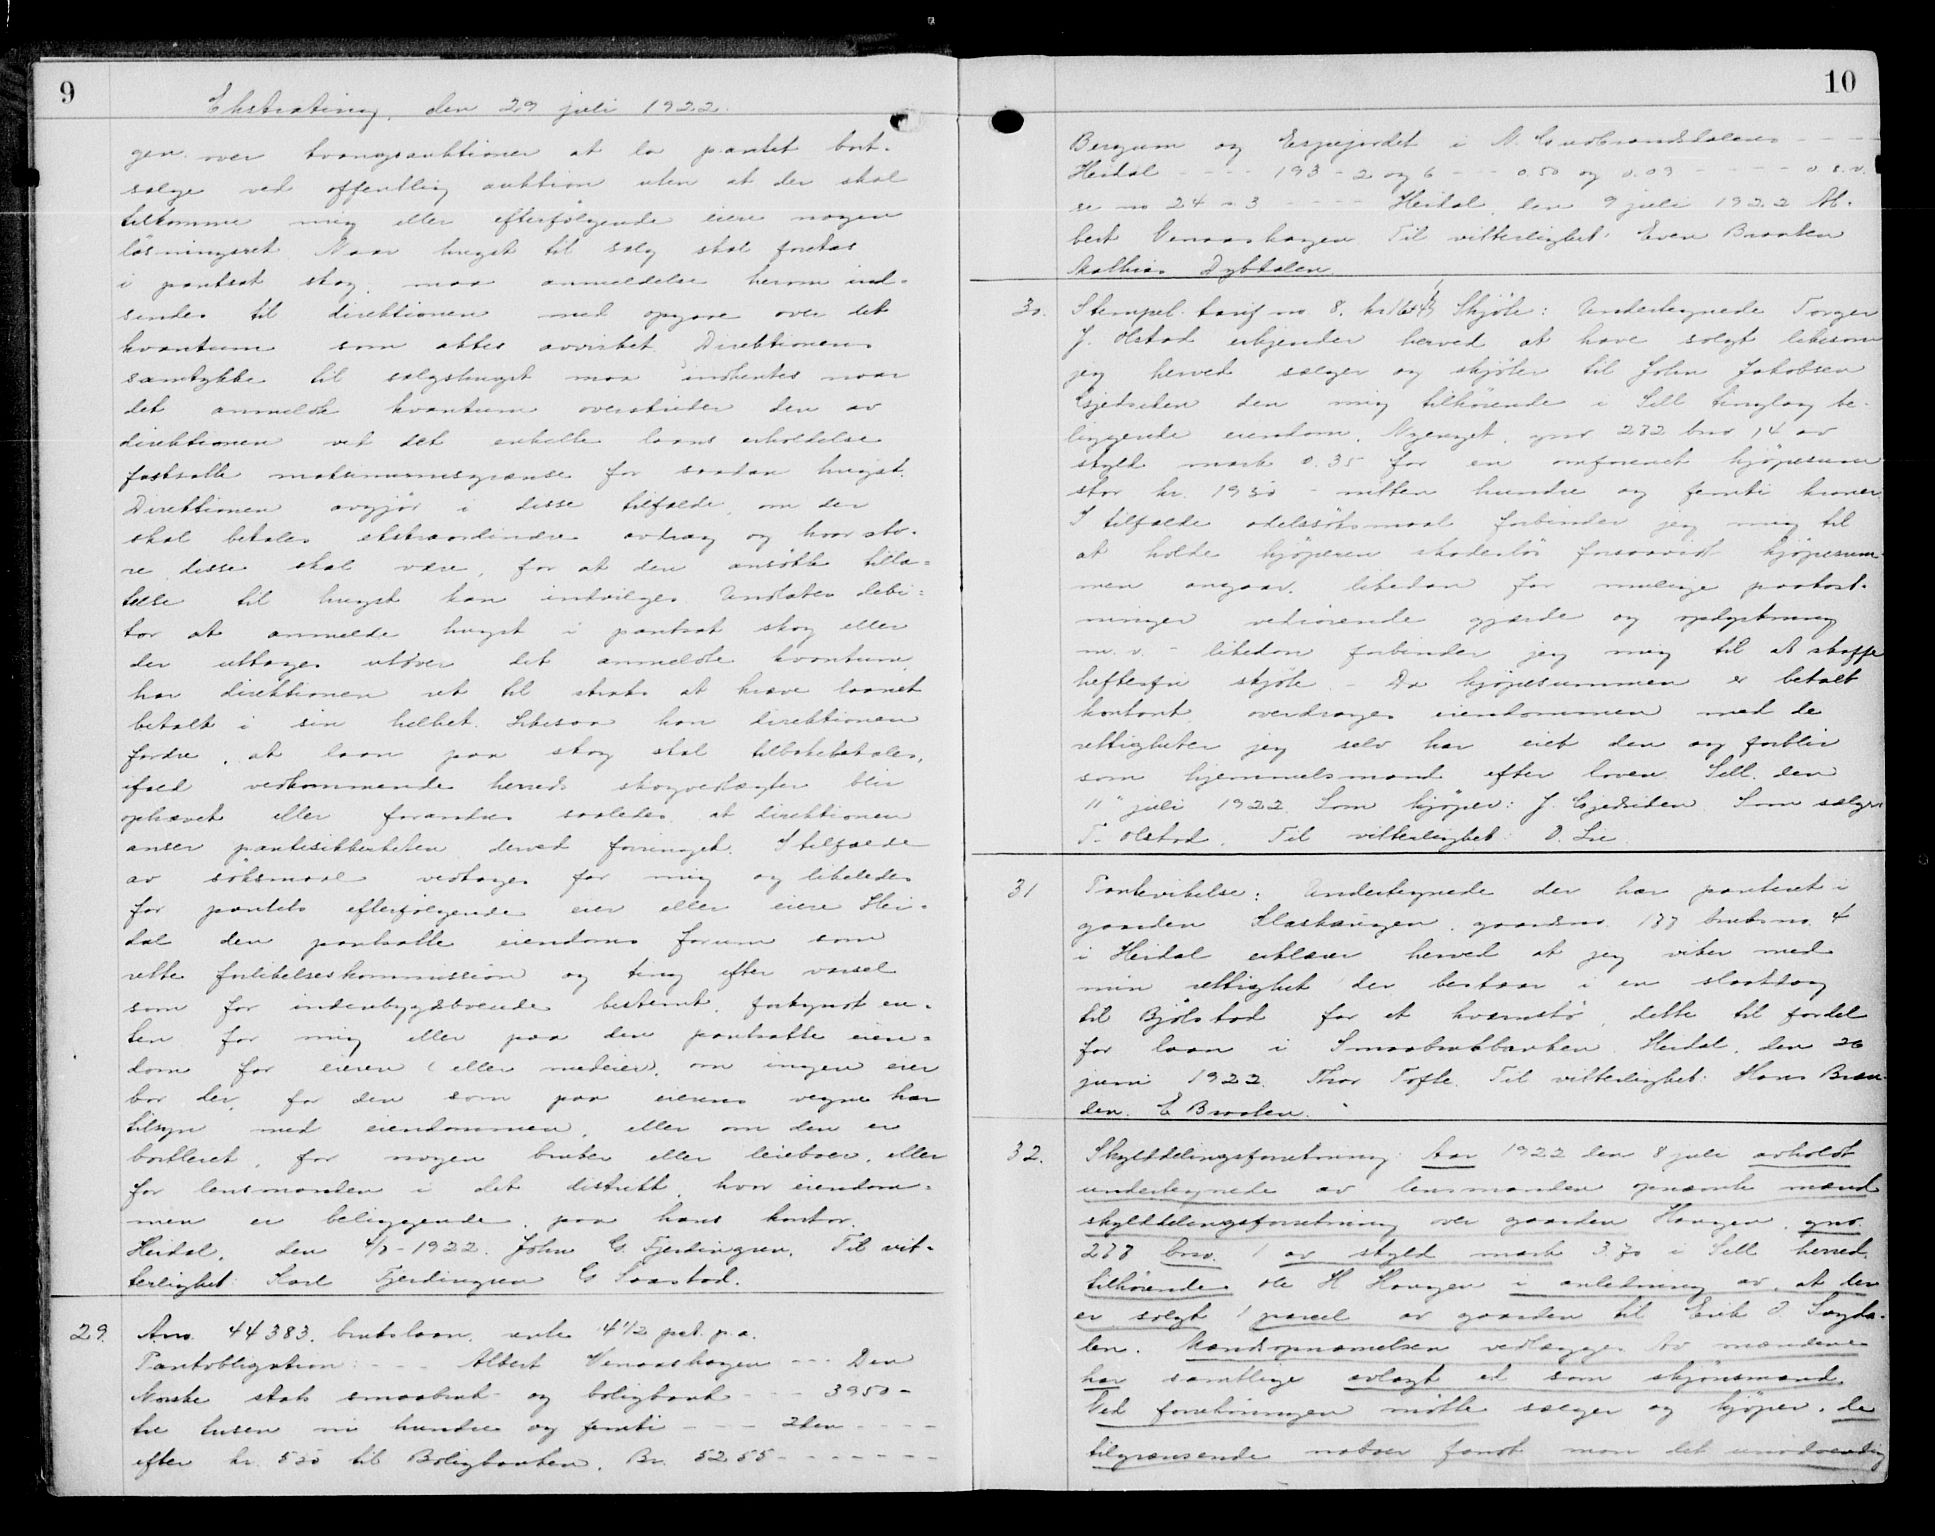 9
Ekstrating, den 29 juli 1922.
gen over tvangsauktioner at la pantet bort-
sælge ved offentlig auktion uten at der skal
tilkomme mig eller efterfølgende eiere nogen
løsningsret. Naar hugst til salg skal foretas
i pantsat skog, maa anmeldelse herom ind-
sendes til direktionen med opgave over det
kvantum som aktes avvirket. Direktionens
samtykke til salgshugst maa indhentes naar
det anmeldte kvantum overstiger den av
direktionen ved det enkelte laans erholdelse
fastsatte maksimumsgrænse for saadan hugst.
Direktionen avgjør i disse tilfælde, om der
skal betales ekstraordinære avdrag og hvor sto-
re disse skal være, for at den ansøkte tilla-
telse til hugst kan indvilges. Undlater debi-
tor at anmelde hugst i pantsat skog eller
der uttages utover det anmeldte kvantum,
har direktionen ret til straks at kræve laanet
betalt i sin helhet. Likesaa kan direktionen
fordre, at laan paa skog skal tilbakebetales,
ifald vedkommende herreds skogvedtægter blir
ophævet eller forandres saaledes, at direktionen
anser pantesikkerheten derved forringet. I tilfælde
av søksmaal vedtages for mig og likeledes
for pantets efterfølgende eier eller eiere Hei-
dal den pantsatte eiendoms forum som
rette forlikelseskommission og ting efter varsel
som for indenbygdsboende bestemt, forkyndt en-
ten for mig eller paa den pantsatte eien-
dom for eieren (eller medeier), om ingen eier
bor der, for den som paa eierens vegne har
tilsyn med eiendommen, eller om den er
bortleiet, for nogen bruker eller leieboer, eller
for lensmanden i det distrikt, hvor eiendom-
men er beliggende, paa hans kontor.
Heidal, den 4/7-1922. John G. Tjerdingren. Til vit-
terlighet: Karl Tjerdingren G Saastad.
29. Anr. 44383. brukslaan, rente 4 1/2 pct. p.a.
Pantobligation: - - - Albert Venaashagen - - - Den
Norske stats smaabruk- og boligbank - - - 3950 -
tre tusen ni hundre og femti - - - 2den - - -
efter kr. 550 til Boligbanken. Br. 5255 - - - - - -
10
Bergum og Espejordet i N. Gudbrandsdalens - - -
Heidal - - - - 193 - 2 og 6 - - - 0.50 og 0.09 - - - - o.s.v.
se no 24 - 3 - - - - Heidal, den 9 juli 1922 Al-
bert Venaashagen Til vitterlighet: Even Braaten
Mathias Dybdalen.
30. Stempel. tarif no 8. kr Skjøte: Undertegnede Torger
J. Olstad erkjender herved at have solgt likesom
jeg herved sælger og skjøter til John Jakobsen
Gjedsiden den mig tilhørende i Sell tinglag be-
liggende eiendom, Nyeng̣et, gno 232 bno 14 av
skyld mark 0.35 for en omforenet kjøpesum
stor kr. 1950 - nitten hundre og femti kroner.
I tilfælde odelssøksmaal forbinder jeg mig til
at holde kjøperen skadesløs forsaavidt kjøpesum-
men angaar, likedan for mulige paakost-
ninger vedrørende gjærde og opdyrkning
m. v. - likedan forbinder jeg mig til at skaffe
heftefri skjøte. - Da kjøpesummen er betalt
kontant overdrages eiendommen med de
rettigheter jeg selv har eiet den og forblir
som hjemmelsmand efter loven. Sell, den
11" juli 1922 Som kjøper: J. Gjedsiden. Som sælger
T. Olstad. Til vitterlighet: O. Lie.
31 Pantevikelse: Undertegnede der har panteret i
gaarden gaardsno. bruksno. 4
i Heidal erklærer herved at jeg viker med
min rettighet der bestaar i en slaatdag
til Bjølstad for et dette til fordel
for laan i Smaabrukbanken. Heidal, den 26
juni 1922. Thor Tofte. Til vitterlighet: Hans Bræn-
den. E Braaten.
32. Skylddelingsforretning. Aar 1922 den 8 juli avholdt
undertegnede av lensmanden opnævnte mænd
skylddelingsforretning over gaarden Haugen, gno.
bno. 1 av skyld mark 3.70 i Sell herred
tilhørende Ole H Haugen i anledning av, at der
er solgt 1 parcel av gaarden til Erik O
len. Mandsopnævnelsen vedlægges. Av mændene
har samtlige avlagt ed som skjønsmænd.
Ved forretningen møtte sælger og kjøper, de
tilgrænsende naboer fandt man det unødvendig